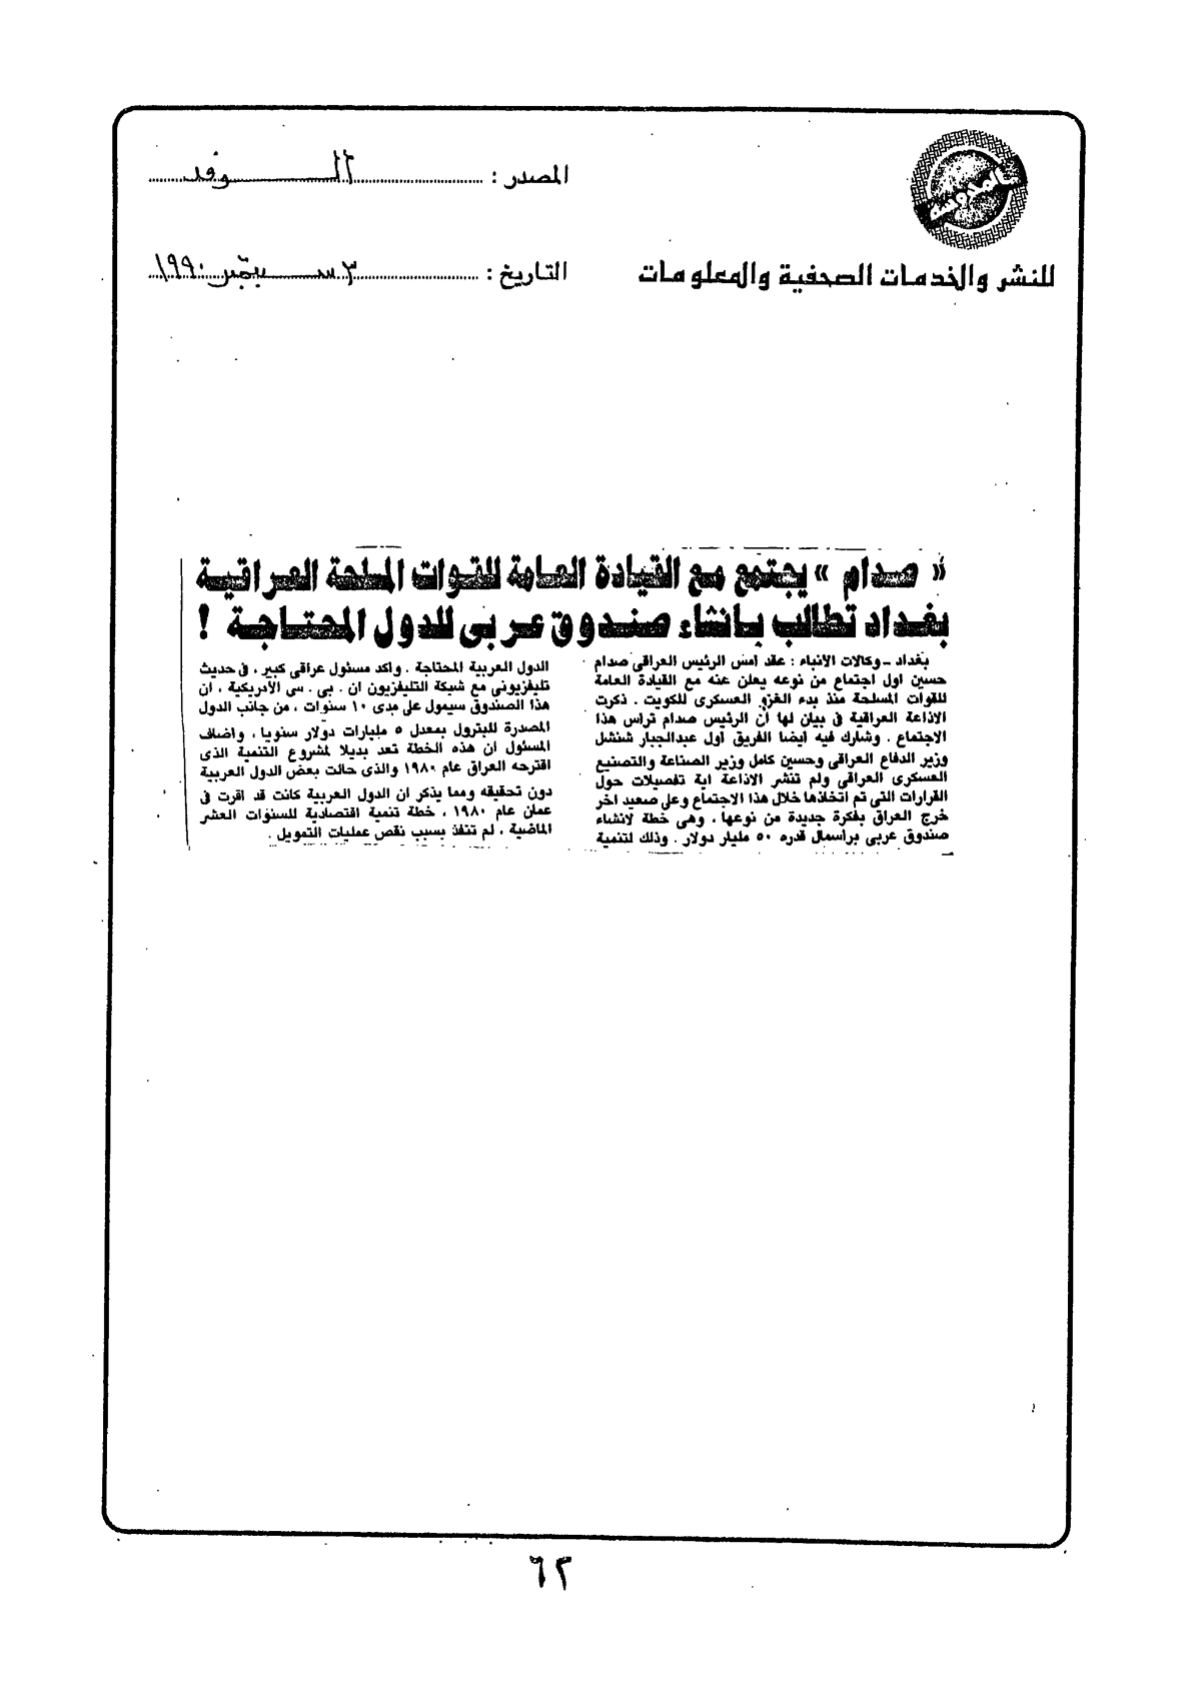 المصدر : الوفد
للنشر والخدمات الصحفية والمعلومات
التاريخ : ٣ سبتمبر ١٩٩٠
« صدام » يجتمع مع القيادة العامة للقوات المسلحة العراقية
بغداد تطالب بانشاء صندوق عربى للدول المحتاجة !
بغداد ـ وكالات الأنباء : عقد أمس الرئيس العراقى صدام
حسين اول اجتماع من نوعه يعلن عنه مع القيادة العامة
للقوات المسلحة منذ بدء الغزو العسكرى للكويت . ذكرت
الاذاعة العراقية فى بيان لها أن الرئيس صدام ترأس هذا
الاجتماع . وشارك فيه ايضا الفريق اول عبدالجبار شنشل
وزير الدفاع العراقى وحسين كامل وزير الصناعة والتصنيع
العسكرى العراقى ولم تنشر الاذاعة اية تفصيلات حول
القرارات التى تم اتخاذها خلال هذا الاجتماع وعلى صعيد اخر
خرج العراق بفكرة جديدة من نوعها ، وهى خطة لانشاء
صندوق عربى براسمال قدره ٥٠ مليار دولار . وذلك لتنمية
الدول العربية المحتاجة . واكد مسئول عراقى كبير ، فى حديث
تليفزيونى مع شبكة التليفزيون ان . بى . سى الأمريكية ، ان
هذا الصندوق سيمول على مدى ١٠ سنوات ، من جانب الدول
المصدرة للبترول بمعدل ٥ مليارات دولار سنويا ، واضاف
المسئول ان هذه الخطة تعد بديلا لمشروع التنمية الذى
اقترحه العراق عام ١٩٨٠ والذى حالت بعض الدول العربية
دون تحقيقه ومما يذكر ان الدول العربية كانت قد اقرت فى
عمان عام ١٩٨٠ ، خطة تنمية اقتصادية للسنوات العشر
الماضية ، لم تنفذ بسبب نقص عمليات التمويل .
٦٢